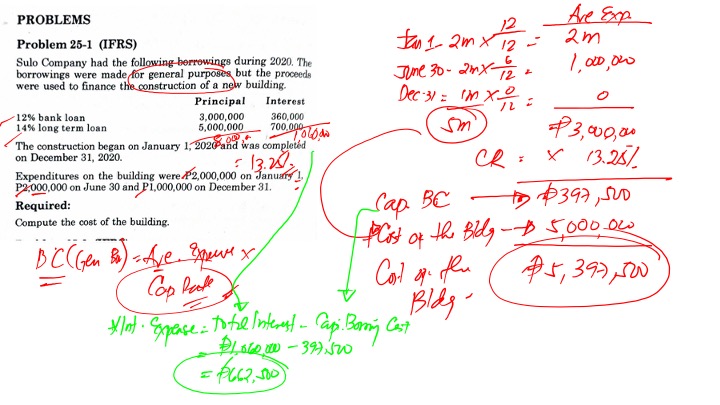 PROBLEMS
Problem 25-1 (IFRS)
Sulo Company had the following borrowings during 2020. The
borrowings were made for general purposes but the proceeds
were used to finance the construction of a new building.
Principal Interest
12% bank loan 3,000,000 360,000
14% long term loan 5,000,000 700,000
8,000,000 1,060,000
The construction began on January 1, 2020 and was completed
on December 31, 2020.
= 13.25%
Expenditures on the building were P2,000,000 on January 1,
P2,000,000 on June 30 and P1,000,000 on December 31.
Required:
Compute the cost of the building.
BC (Gen Bo) = Ave. Expense x
Cap Rate
Ave Exp.
Jan 1 - 2m x 12/12 = 2m
June 30 - 2m x 6/12 = 1,000,000
Dec. 31 = 1m x 0/12 = 0
5m ₱3,000,000
CR = x 13.25%
Cap. BC → ₱397,500
Cost of the Bldg → 5,000,000
Cost of the ₱5,397,500
Bldg -
Int. Expense = Total Interest - Cap. Borrowing Cost
= ₱1,060,000 - 397,500
= ₱662,500